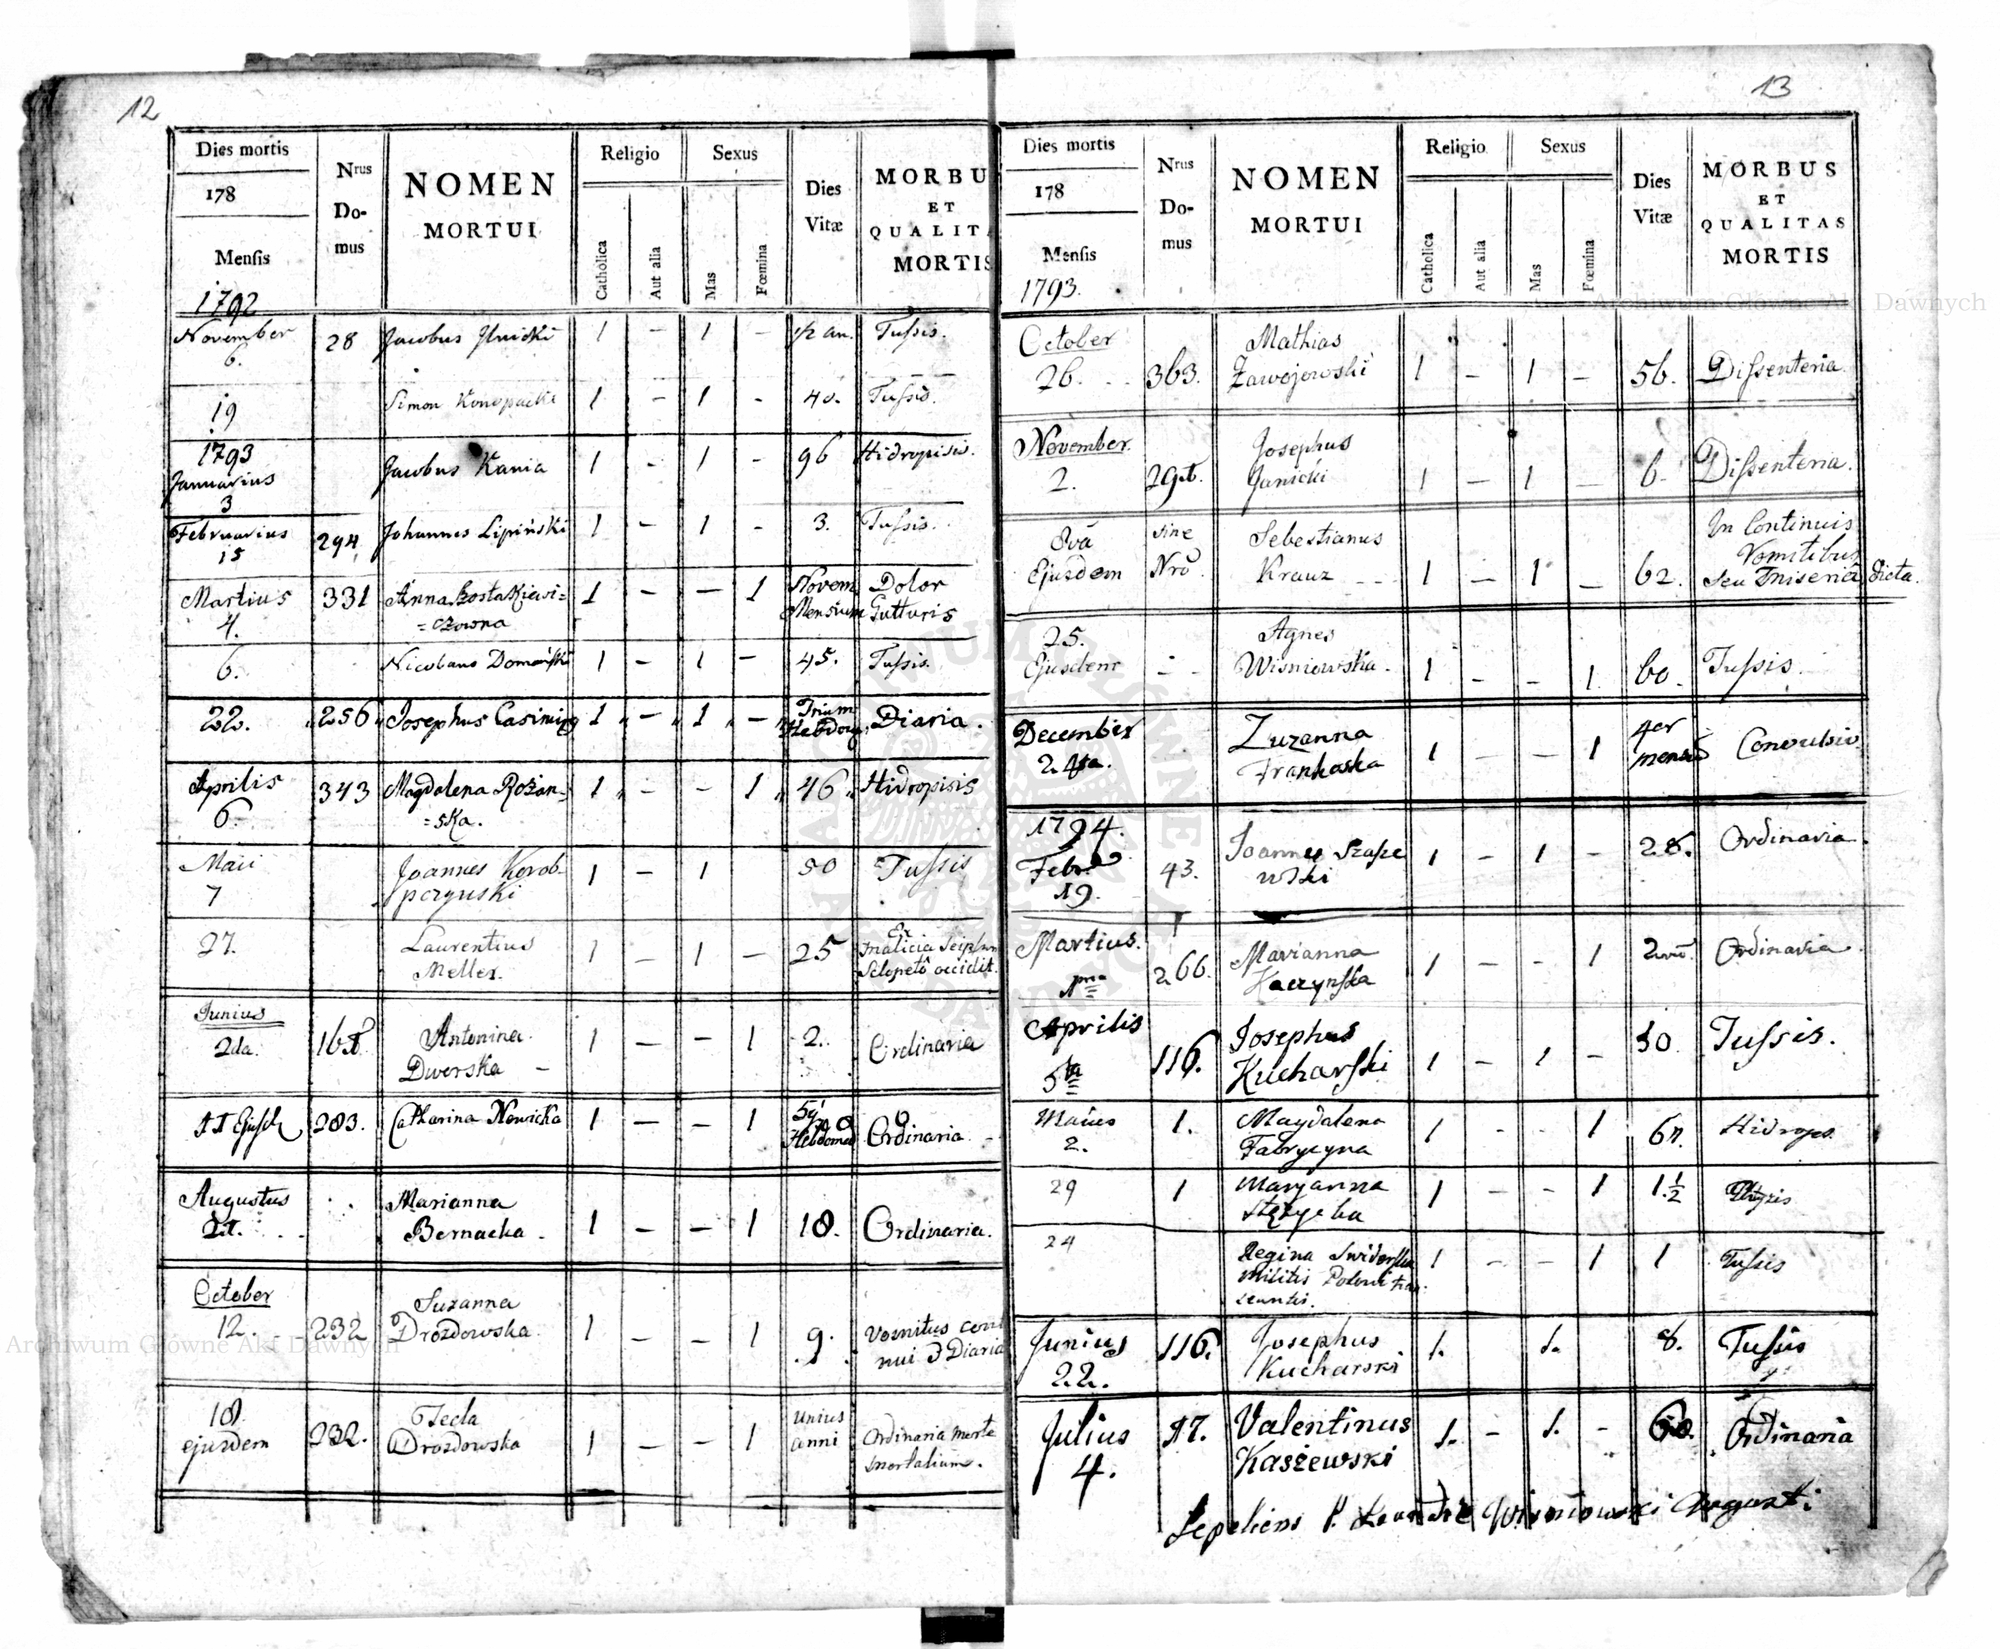 12
Dies mortis
178
Mensis
1792
Nrus
Do-
mus
NOMEN
MORTUI
Religio
Catholica
Aut alia
Sexus
Mas
Fœmina
Dies
Vitæ
MORBU
ET
QUALIT
MORTIS
November
6. 28 Jacobus 1 – 1 – 1/2 an. Tussis.
19 Simon Konopacki 1 – 1 – 40. Tussis.
1793
Januarius
3 Jacobus Kania 1 – 1 – 96 Hidropisis.
Februarius
15 294 Johannes Lipiński 1 – 1 – 3. Tussis.
Martius 331 Anna Kostakiewi= 1 – – 1 Novem Dolor
4. =czowna Mensium Gutturis
6. Nicolaus Domański 1 – 1 – 45. Tussis.
22. 256 Josephus Casimir 1 – 1 – Trium Diaria.
Hebdom
Aprilis 343 Magdalena Rożan= 1 – – 1 46 Hidropisis
6. =ska.
Maii Joannes Korob- 1 – 1 50 Tussis
7 pczynski
27. Laurentius 1 – 1 – 25 Ex
Meller. malicia seipsum
Sclopetô occidit.
Junius
2da. 16 Antonina 1 – – 1 2. Ordinaria
Dwerska –
283. Catharina Nowicka 1 – – 1 Ordinaria –
Hebdoma
Augustus Marianna
Bernacka. 1 – – 1 18. Ordinaria.
October Suzanna
12. 232 Drozdowska. 1 – – 1 9. Vomitus conti
nui & Diaria
18 Tecla Unius
ejusdem 232. Drozdowska 1 – – 1 anni Ordinaria morte
mortalium.
13
Dies mortis
178
Mensis
1793.
Nrus
Do-
mus
NOMEN
MORTUI
Religio
Catholica
Aut alia
Sexus
Mas
Fœmina
Dies
Vitæ
MORBUS
ET
QUALITAS
MORTIS
October Mathias
26. 363. Zawojewski 1 – 1 – 56. Dissenteria.
November. Josephus
2. Janicki 1 – 1 – 6. Dissenteria.
8va sine Sebestianus In Continuis
Ejusdem Nrô Krauz 1 – 1 – 62. Vomitibus
seu Miseriâ Dicta.
25. Agnes
Ejusdem – Wisniowska. 1 – – 1 60. Tussis.
December Zuzanna 4or
Frankoska 1 – – 1 Convulsio
1794.
Febr 43. Joannes Szasze 1 – 1 – 28. Ordinaria.
19. wski
Martius. 266. Marianna 1 – – 1 Ordinaria.
1ma Kaczynska
Aprilis 116. Josephus 1 – 1 – 30 Tussis.
5ta Kucharski
Maius 1. Magdalena 1 – – 1 Hidrops
2. Fabrycyna
29 1 Maryanna 1 – – 1 1.1/2
24 Regina Swiderska 1 – – 1 1 Tussis
militis Poloni tran
seuntis.
Junius 116. Josephus 1. 1. 8. Tussis
22. Kucharski
Julius 17. Valentinus 1. – 1. – Ordinaria
4. Kaszewski
Sepeliens P. Wisniowski August:
Archiwum Główne Akt Dawnych
Archiwum Główne Akt Dawnych
ARCHIWUM GŁÓWNE AKT DAWNYCH